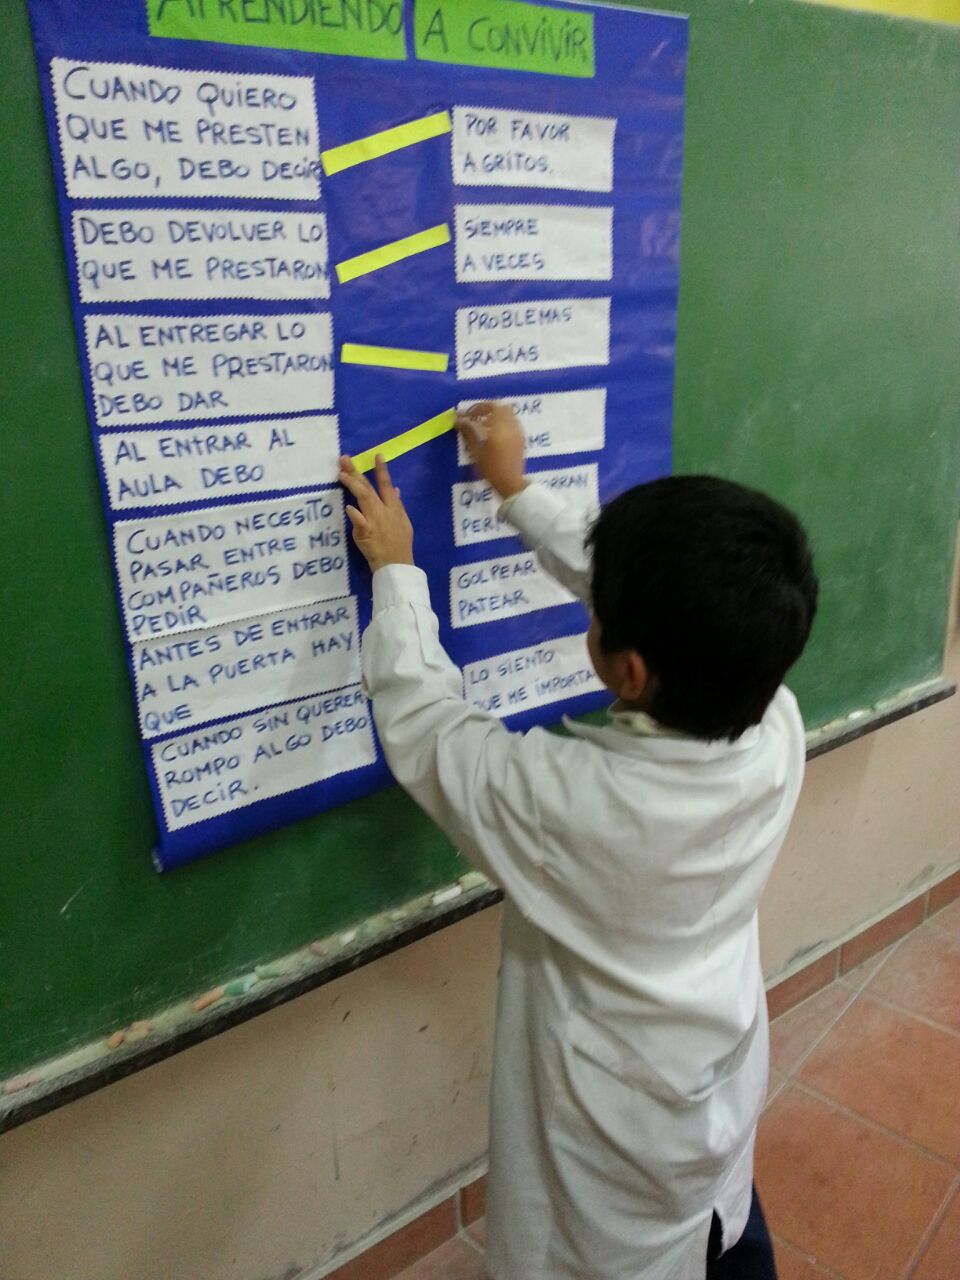 APRENDIENDO A CONVIVIR
CUANDO QUIERO
QUE ME PRESTEN
ALGO, DEBO DECIR
POR FAVOR
A GRITOS.
DEBO DEVOLVER LO
QUE ME PRESTARON
SIEMPRE
A VECES
AL ENTREGAR LO
QUE ME PRESTARON
DEBO DAR
PROBLEMAS
GRACIAS
AL ENTRAR AL
AULA DEBO
CUANDO NECESITO
PASAR ENTRE MIS
COMPAÑEROS DEBO
PEDIR
QUE
ANTES DE ENTRAR
A LA PUERTA HAY
QUE
GOLPEAR
PATEAR
CUANDO SIN QUERER
ROMPO ALGO DEBO
DECIR.
LO SIENTO
QUE ME IMPORTA